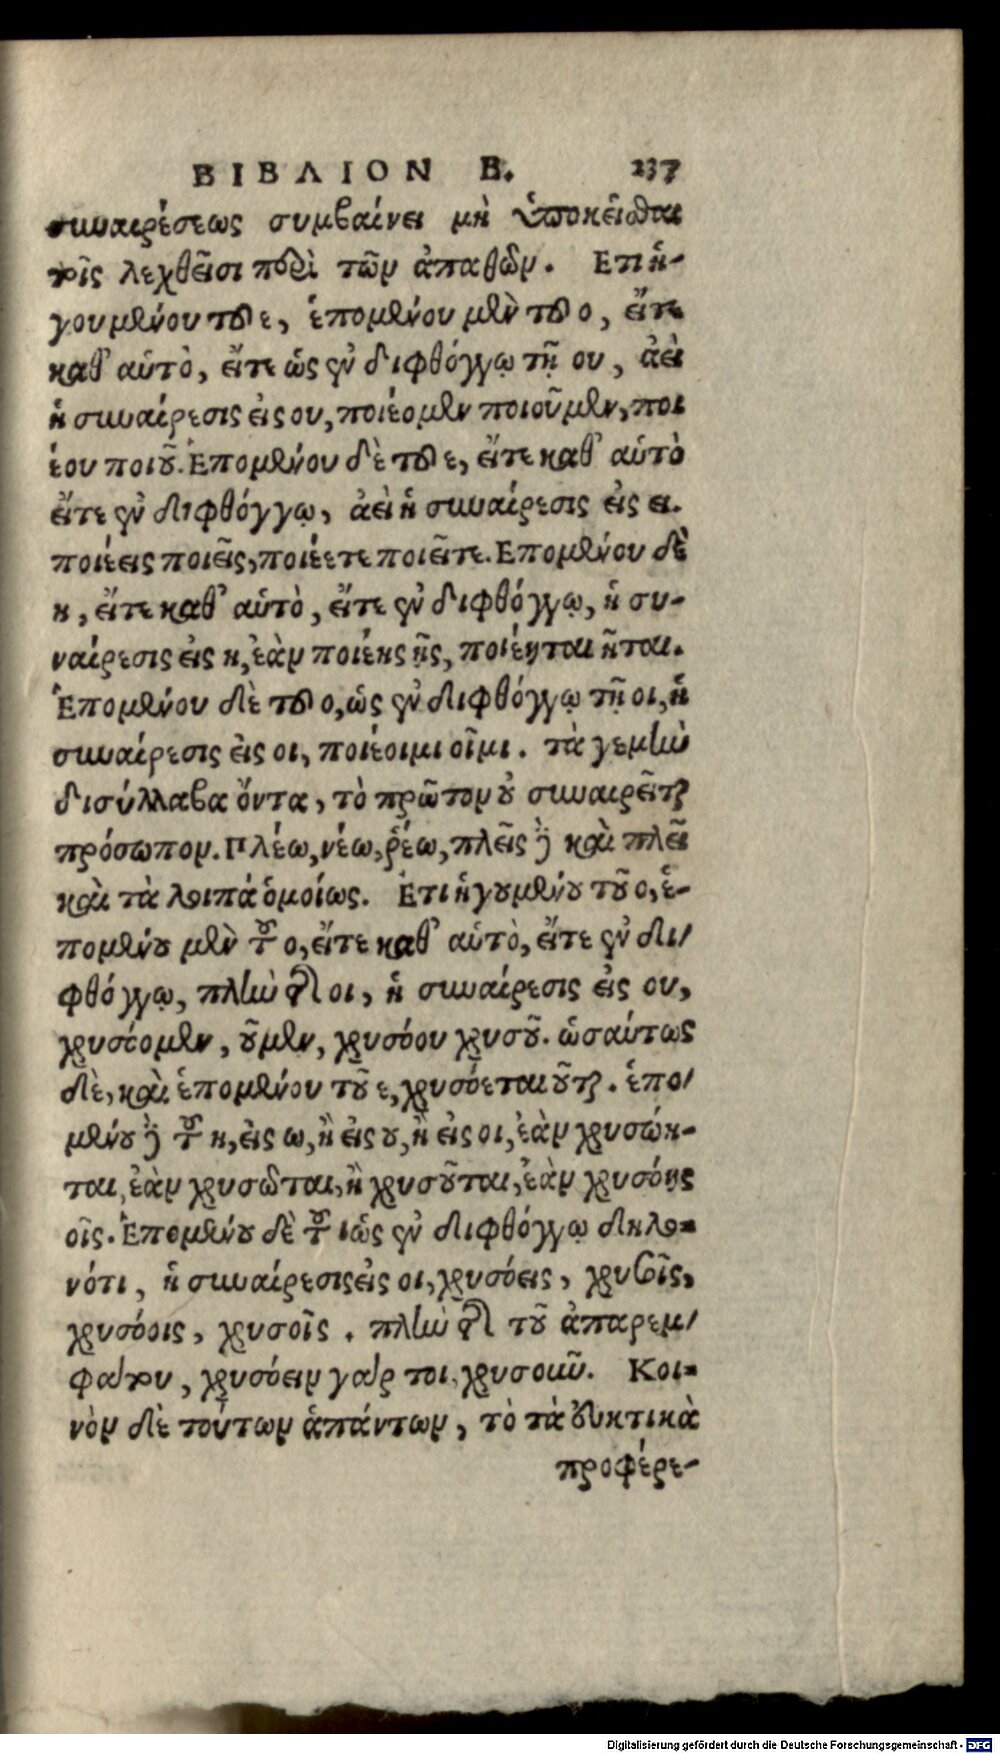 ΒΙΒΛΙΟΝ Β. 237
συναιρέσεως συμβαίνει μὴ ὑποκεῖσθαι
τοῖς λεχθεῖσι περὶ τῶν ἀπαθῶν. Επι ἡ-
γουμένου τοῦ ε, ἑπομένου μὲν τοῦ ο, εἴτε
καθ' αὑτὸ, εἴτε ὡς ἐν διφθόγγῳ τῇ ου, ἀεὶ
ἡ συναίρεσις εἰς ου, ποιέομεν ποιοῦμεν, ποι
έου ποιοῦ. Ἑπομένου δὲ τοῦ ε, εἴτε καθ' αὑτὸ
εἴτε ἐν διφθόγγῳ, ἀεὶ ἡ συναίρεσις εἰς ει.
ποιέεις ποιεῖς, ποιέετε ποιεῖτε. Επομένου δὲ
η, εἴτε καθ' αὑτὸ, εἴτε ἐν διφθόγγῳ, ἡ συ-
ναίρεσις εἰς η, ἐὰν ποιέῃς ῇς, ποιέηται ῆται.
Ἑπομένου δὲ τοῦ ο, ὡς ἐν διφθόγγῳ τῇ οι, ἡ
συναίρεσις εἰς οι, ποιέοιμι οῖμι. τὰ γεμὴν
δισύλλαβα ὄντα, τὸ πρῶτον οὐ συναιρεῖται
πρόσωπον. Πλέω, νέω, ῥέω, πλεῖς δὲ καὶ πλεῖ
καὶ τὰ λοιπά ὁμοίως. Ετι ἡγουμένου τοῦ ο, ἑ-
πομένου μὲν τοῦ ο, εἴτε καθ' αὑτὸ, εἴτε ἐν δι/
φθόγγῳ, πλὴν τῆς οι, ἡ συναίρεσις εἰς ου,
χρυσόομεν, οῦμεν, χρυσόου χρυσοῦ. ὡσαύτως
δὲ, καὶ ἑπομένου τοῦ ε, χρυσόεται οῦται. ἑπο/
μένου δὲ τοῦ η, εἰς ω, ἢ εἰς ου, ἢ εἰς οι, ἐὰν χρυσώη-
ται, ἐὰν χρυσῶται, ἢ χρυσοῦται, ἐὰν χρυσόῃς
οῖς. Ἑπομένου δὲ τοῦ ι ὡς ἐν διφθόγγῳ δηλο-
νότι, ἡ συναίρεσις εἰς οι, χρυσόεις, χρυσοῖς,
χρυσόοις, χρυσοῖς. πλὴν τοῦ ἀπαρεμ/
φάτου, χρυσόειν γάρ τοι χρυσοῦν. Κοι-
νὸν δὲ τούτων ἁπάντων, τὸ τὰ εὐκτικὰ
προφέρε-
Digitalisierung gefördert durch die Deutsche Forschungsgemeinschaft - DFG